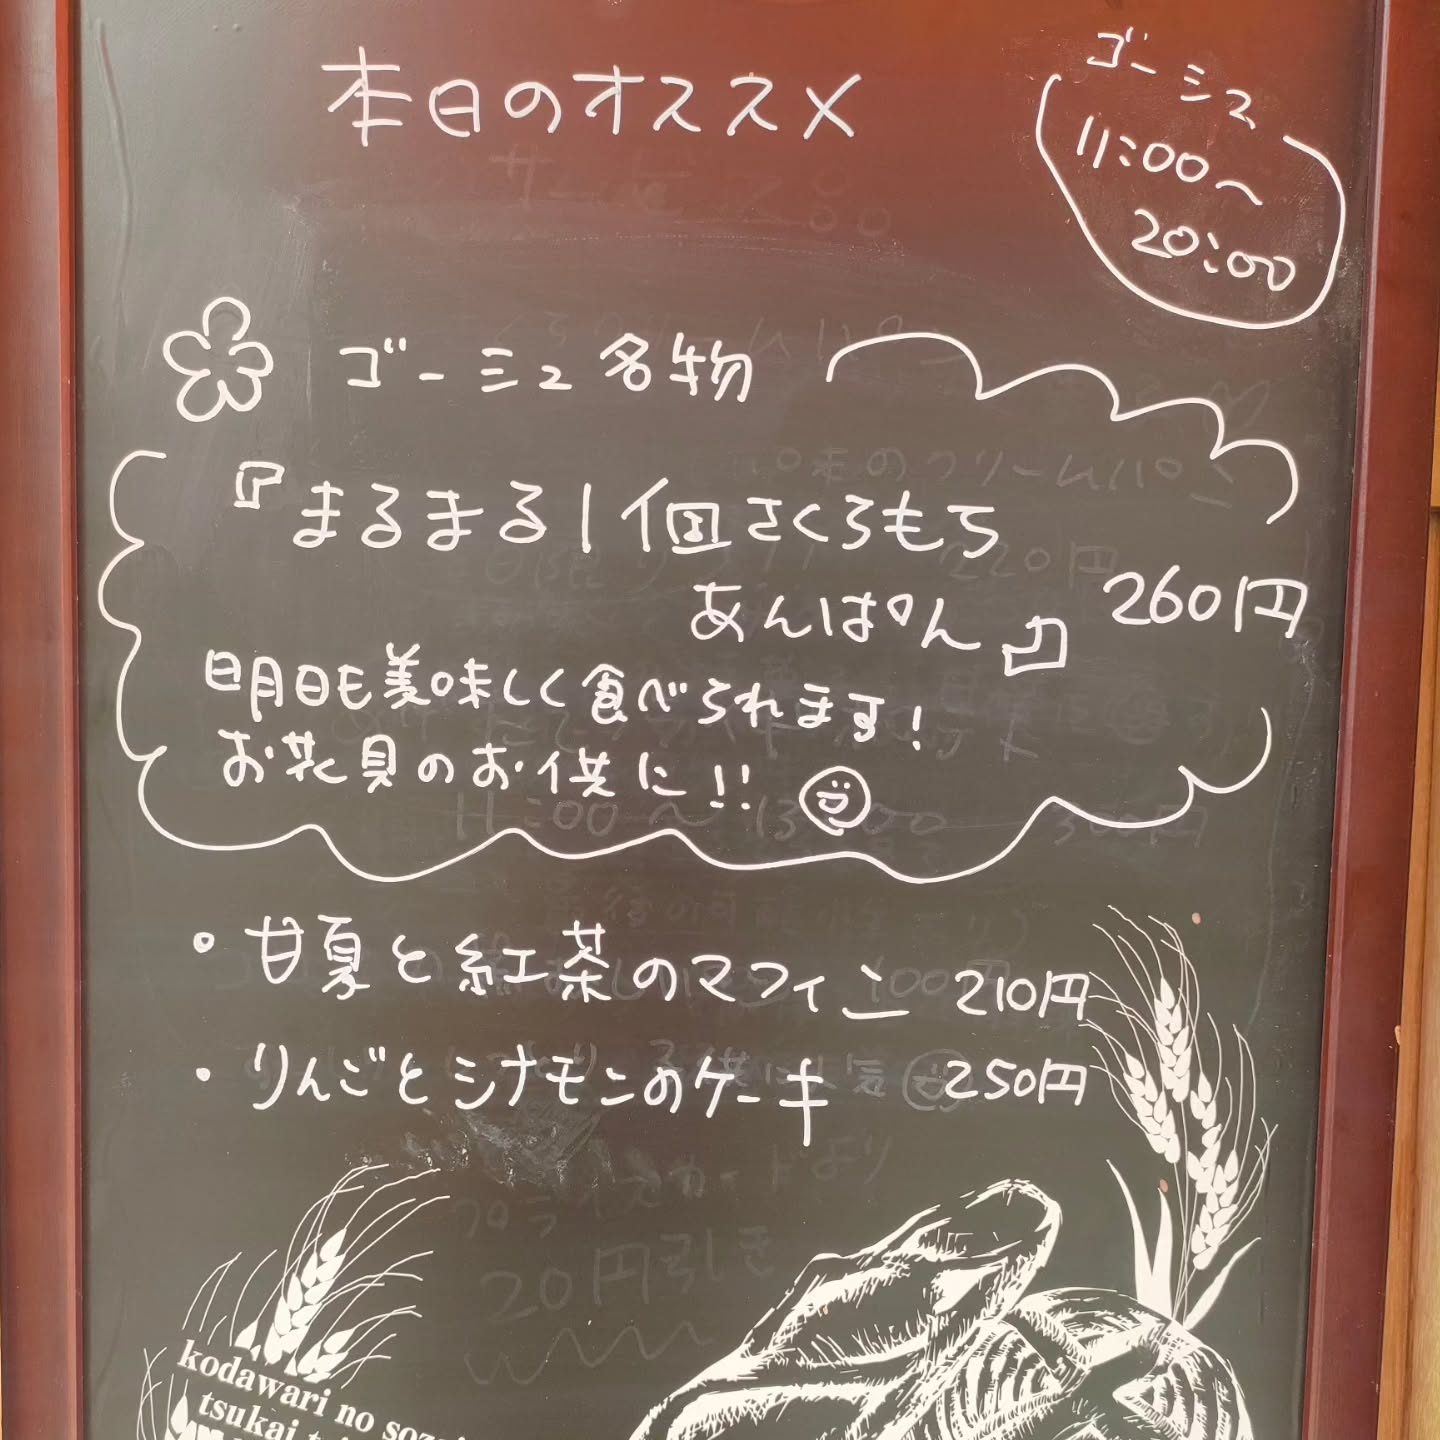 本日のオススメ
ゴーシュ
11:00〜
20:00
ゴーシュ名物
『まるまる1個さくらもち
あんぱん』
260円
明日も美味しく食べられます!
お花見のお供に!!
・甘夏と紅茶のマフィン 210円
・りんごとシナモンのケーキ 250円
プライスカードより
20円引き
kodawari no soza
tsukai